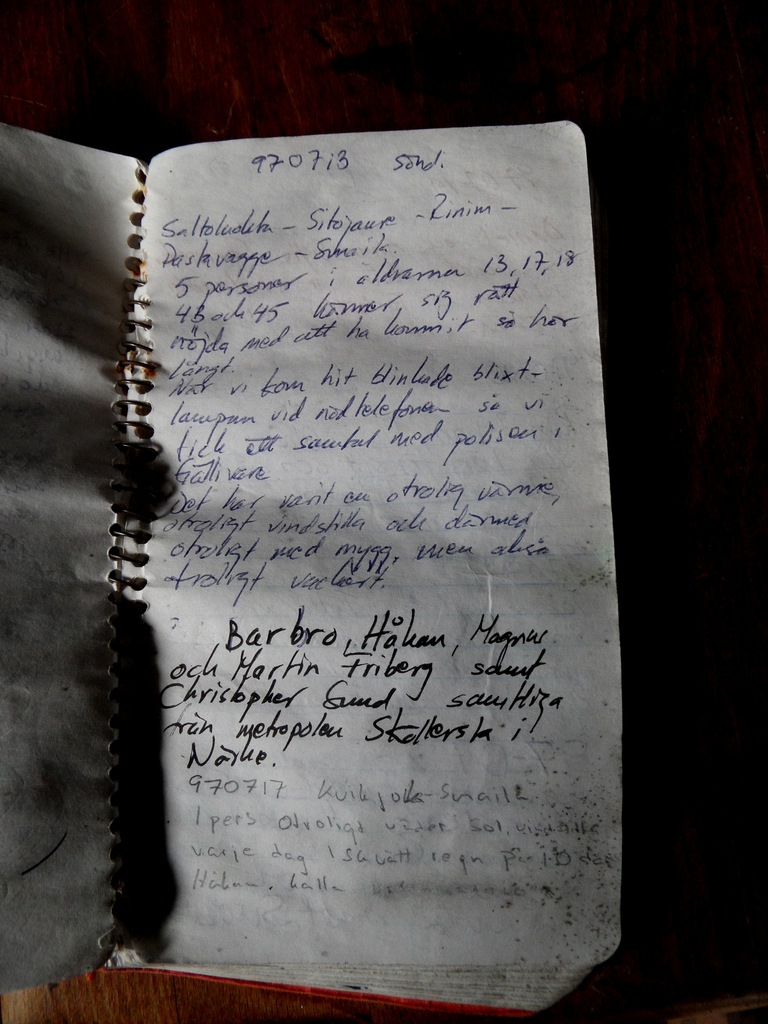 970713 Sönd.
Saltoluokta - Sitojaure - Rinim -
Pastavagge - Smaila.
5 personer i åldrarna 13, 17, 18
43 och 45 känner sig rätt
nöjda med att ha kommit så här
långt.
När vi kom hit blinkade blixt-
lampan vid nödtelefonen så vi
fick ett samtal med polisen i
Gällivare
Det har varit en otrolig värme,
otroligt vindstilla och därmed
otroligt med mygg, men också
otroligt vackert.
Barbro, Håkan, Magnus
och Martin Friberg samt
Christopher Sund, samtliga
från metropolen Sköllersta i
Närke.
970717 Kvikkjokk-Smaila
1 pers Otroligt väder Sol, vindstilla
varje dag 1 skvätt regn på 10 dag
Håkan. källa